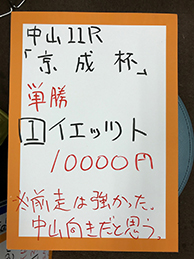 中山11R
「京成杯」
単勝
1イエッツト
10000円
※前走は強かった。
中山向きだと思う。